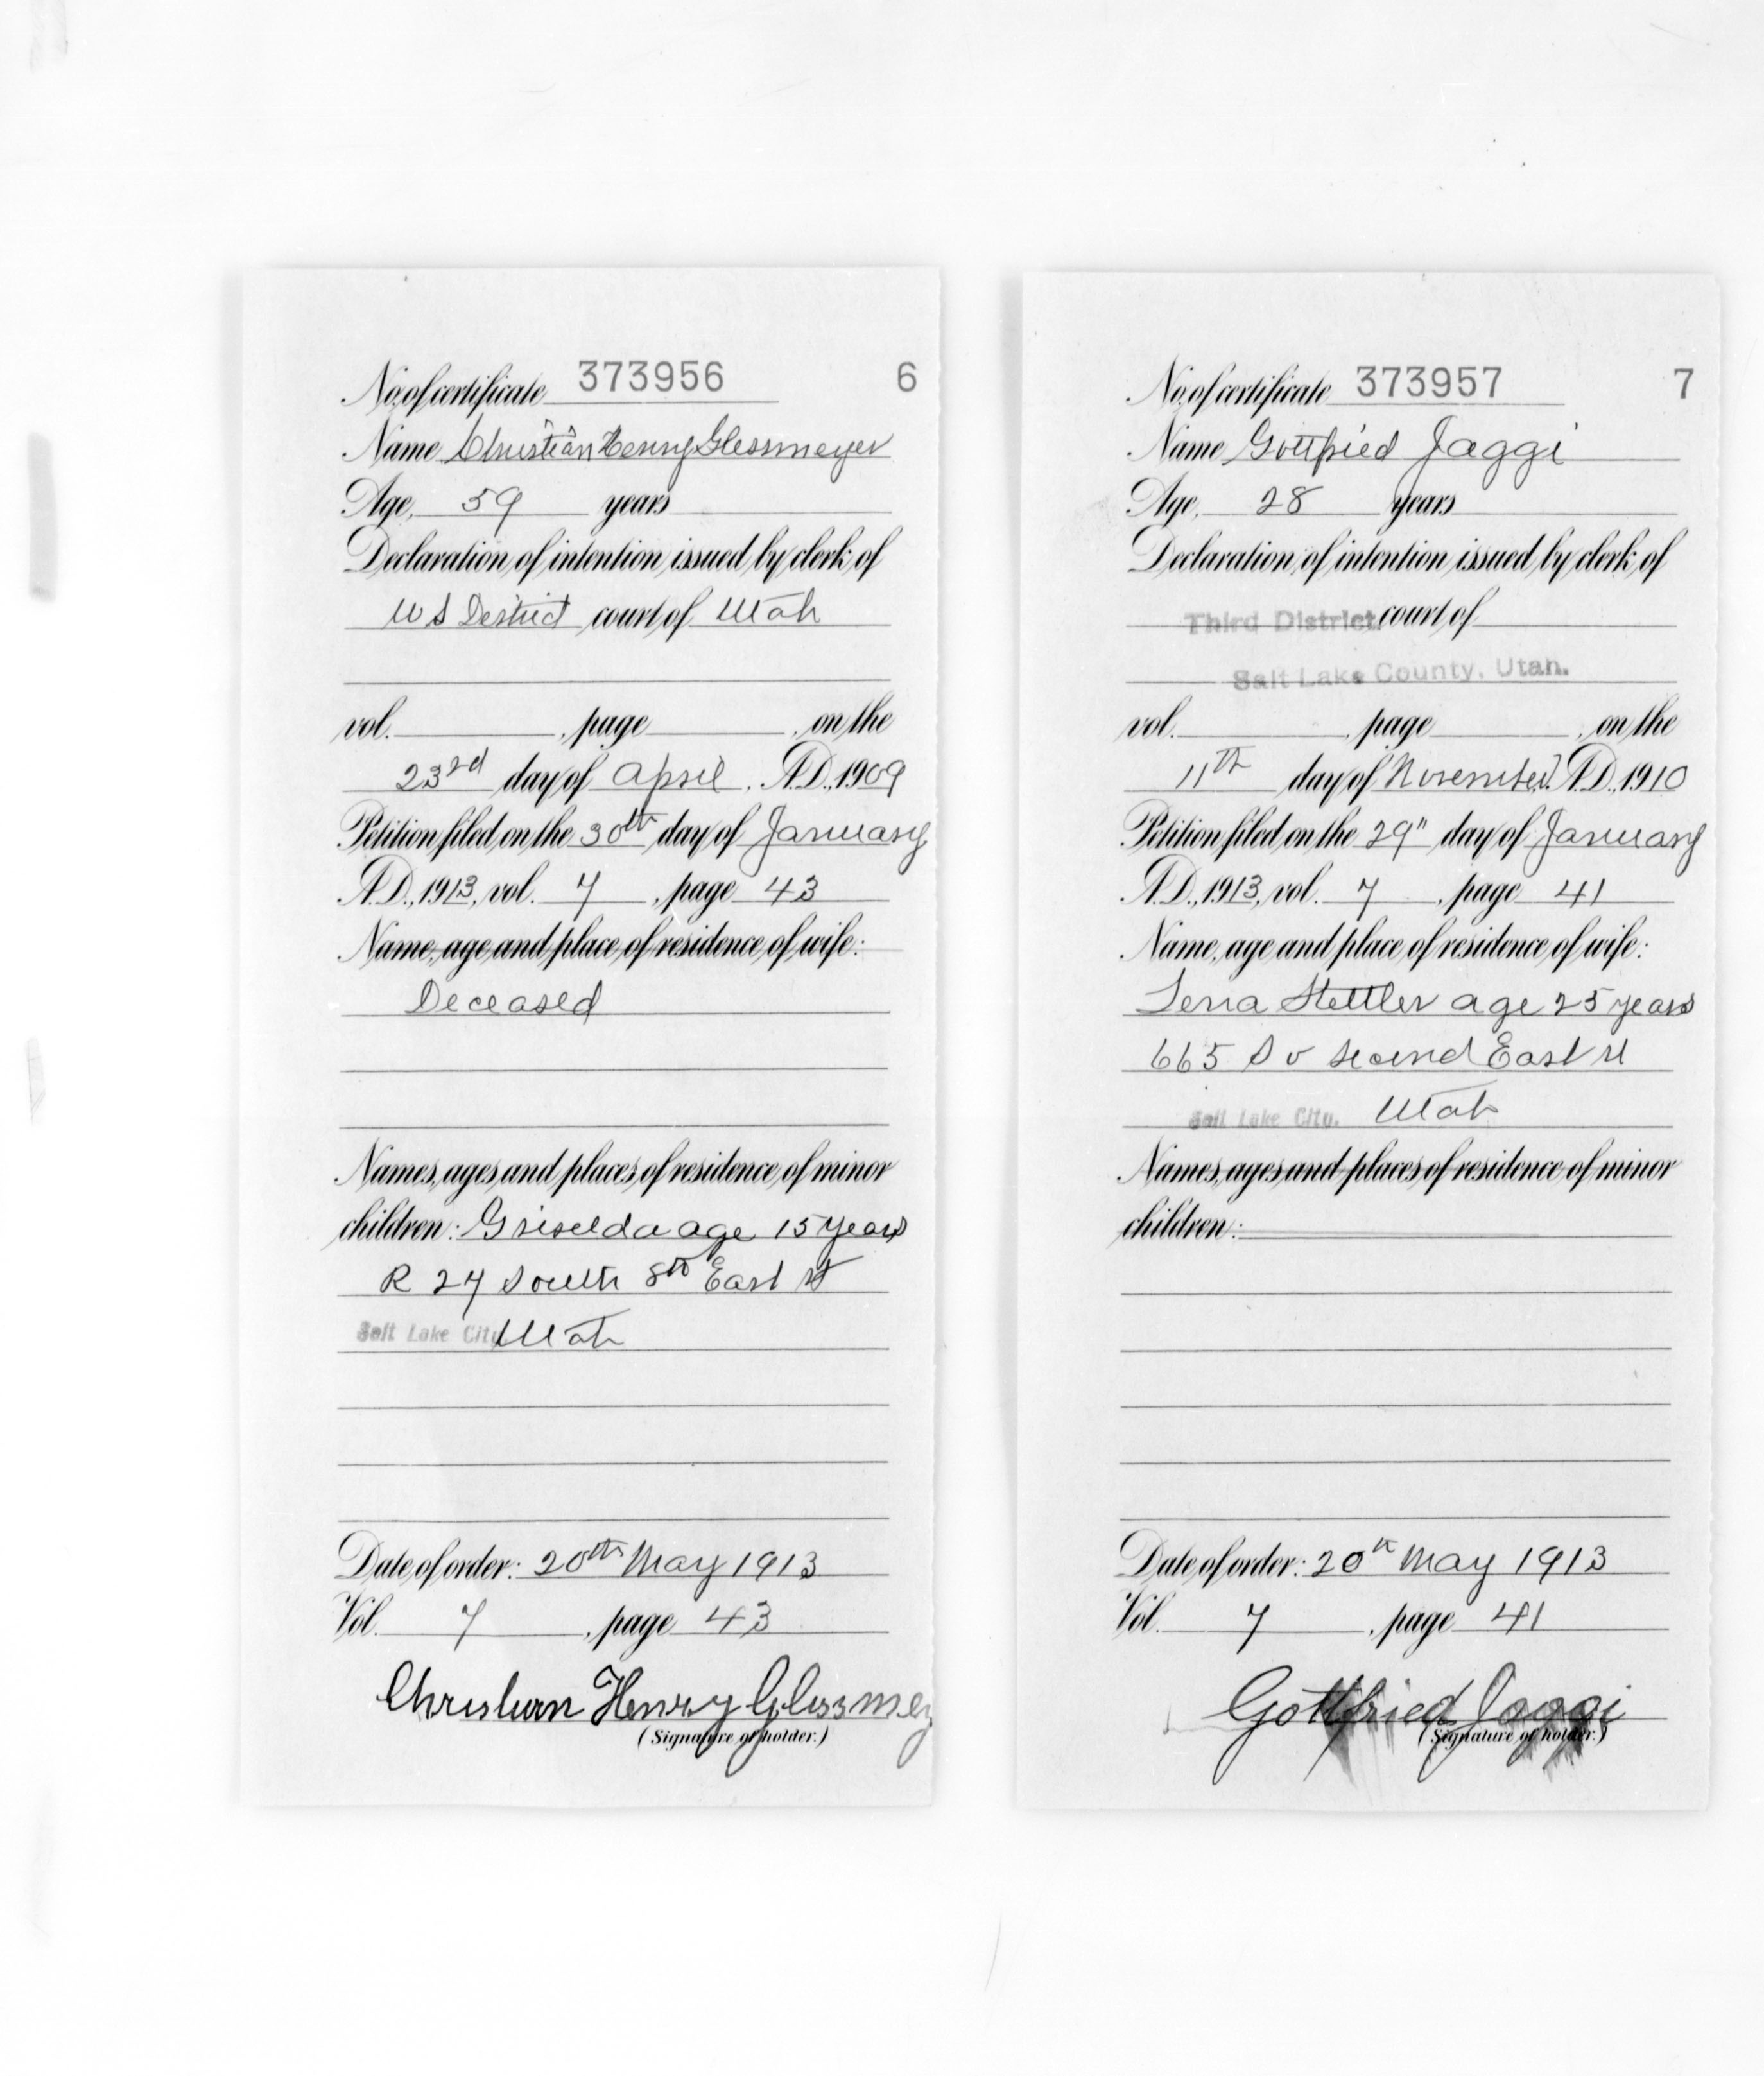 No. of certificate 373956 6
Name Christian Henry Glessmeyer
Age, 59 years
Declaration of intention issued by clerk of
U S District court of Utah
vol. , page , on the
23rd day of April, A.D., 1909
Petition filed on the 30th day of January
A.D., 1913, vol. 7, page 43
Name, age and place of residence of wife:
Deceased
Names, ages and places of residence of minor
children: Griselda age 15 years
R 27 South 8th East St
Salt Lake City, Utah
Date of order: 20th May 1913
Vol. 7, page 43
Christian Henry Glessmey
(Signature of holder.)
No. of certificate 373957 7
Name Gottfried Jaggi
Age, 28 years
Declaration of intention issued by clerk of
Third District court of
Salt Lake County, Utah.
vol. , page , on the
11th day of November, A.D., 1910
Petition filed on the 29" day of January
A.D., 1913, vol. 7, page 41
Name, age and place of residence of wife:
Lena Stettler age 25 years
665 So second East st
Salt Lake City, Utah
Names, ages and places of residence of minor
children:
Date of order: 20th May 1913
Vol. 7, page 41
Gottfried Jaggi
(Signature of holder.)